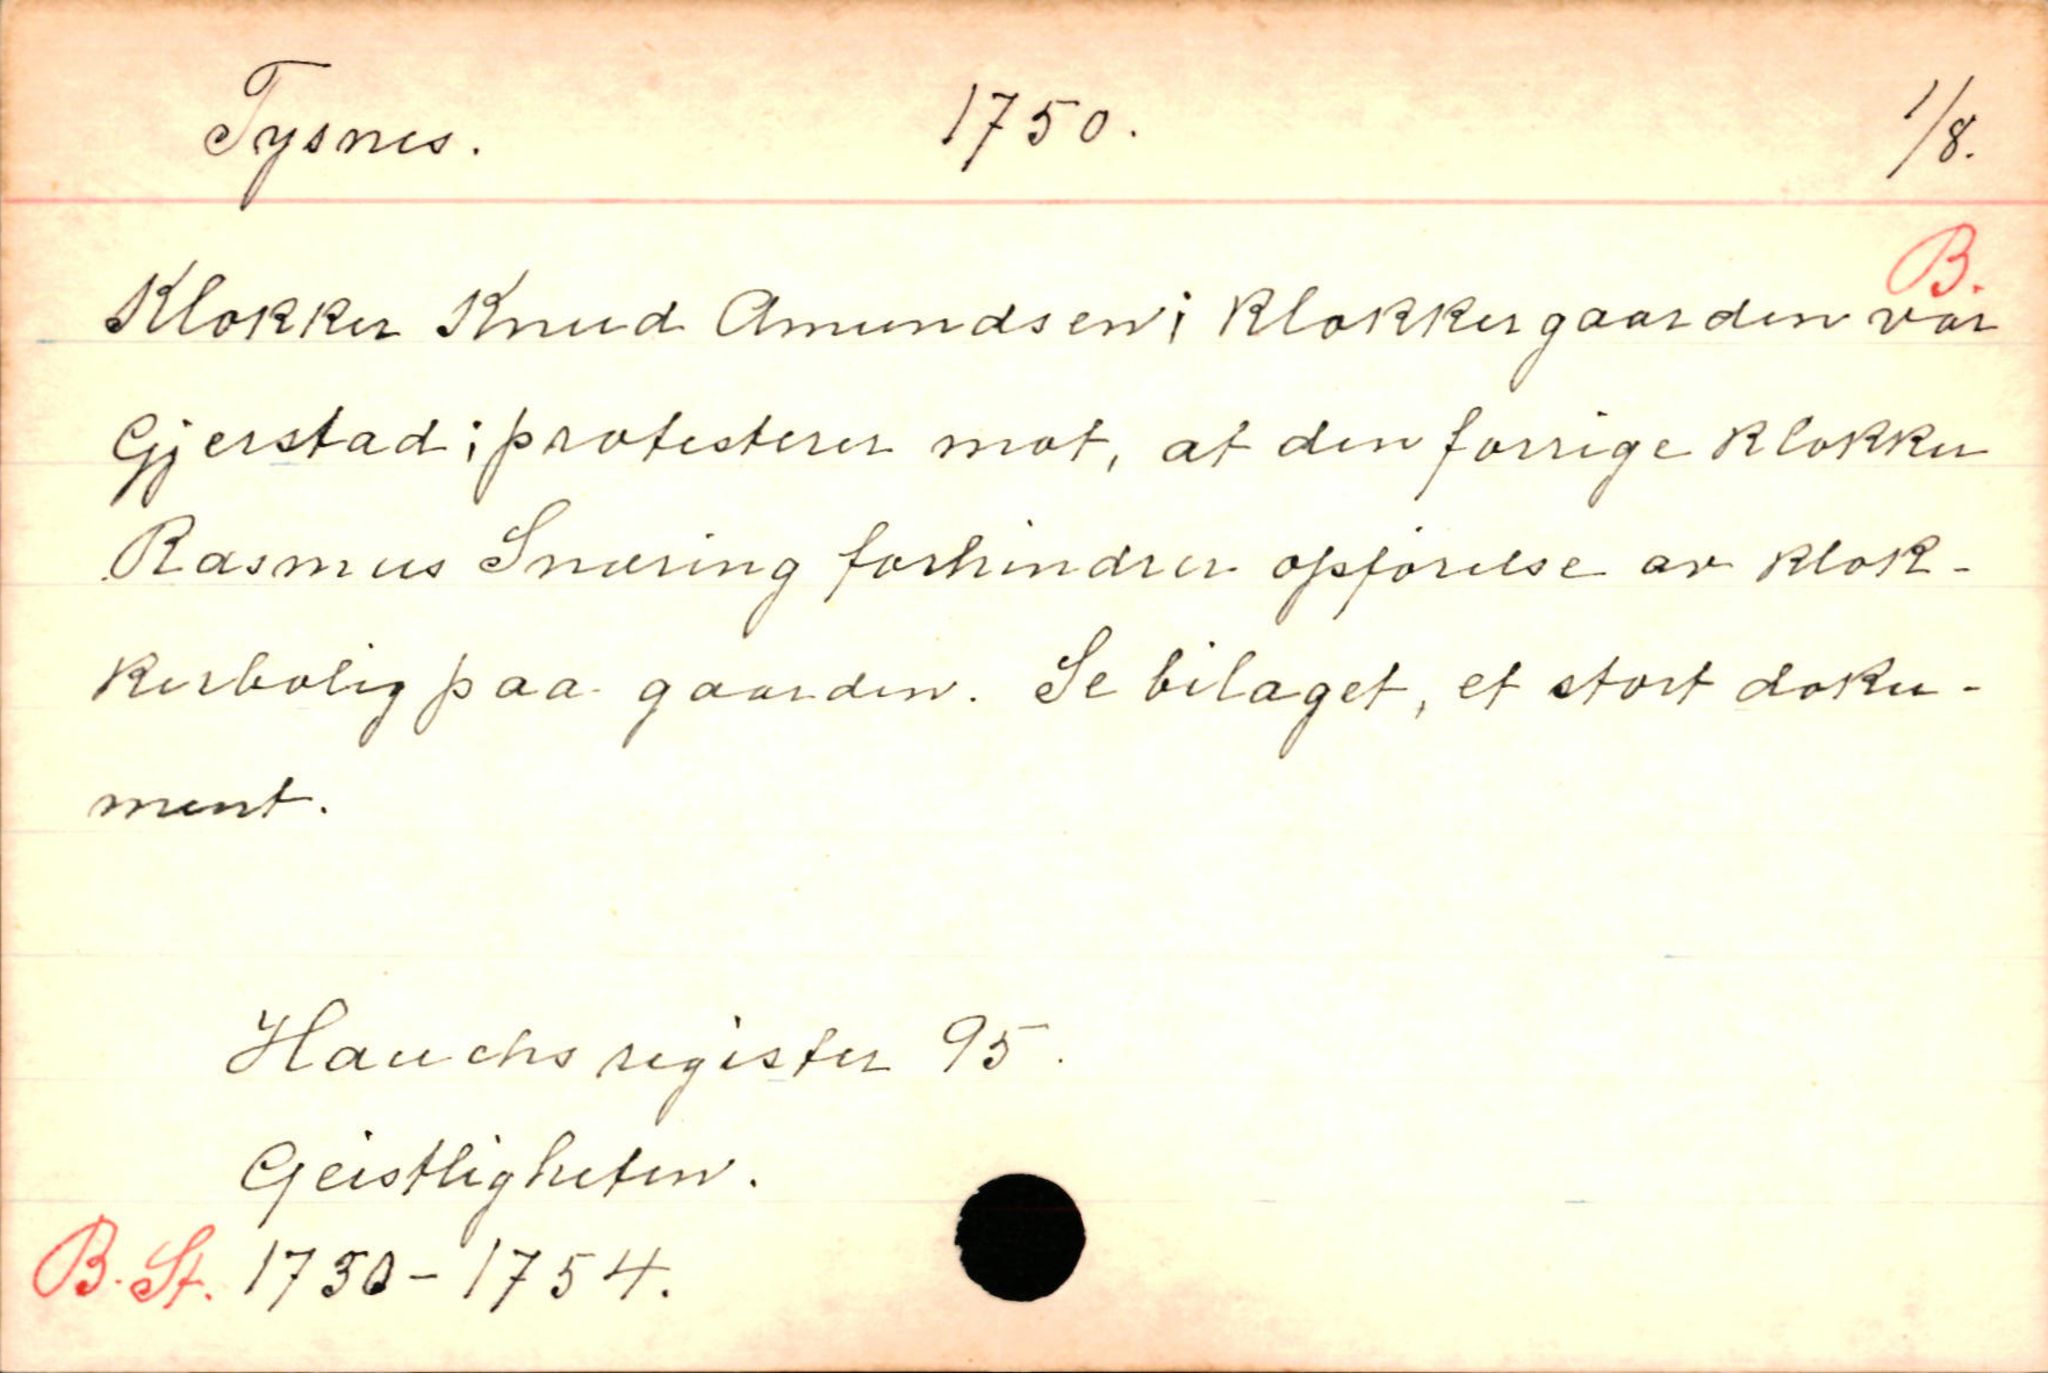 Tysnes. 1750. 1/8.
B.
Klokker Knud Amundsen i Klokkergaarden var
Gjerstad i protesterer mot, at den forrige klokker
Rasmus Snæring forhindrer opførelse av klok-
kerbolig paa gaarden. Se bilaget, et stort doku-
ment.
Hauchs register 95.
Geistligheten.
B. St. 1730-1754.